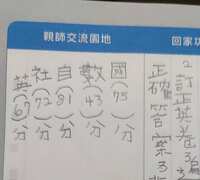 親師交流園地
回家功
國(75)分
數(43)分
自(81)分
社(72)分
英(67)分
2訂正英卷3/
正確答案3